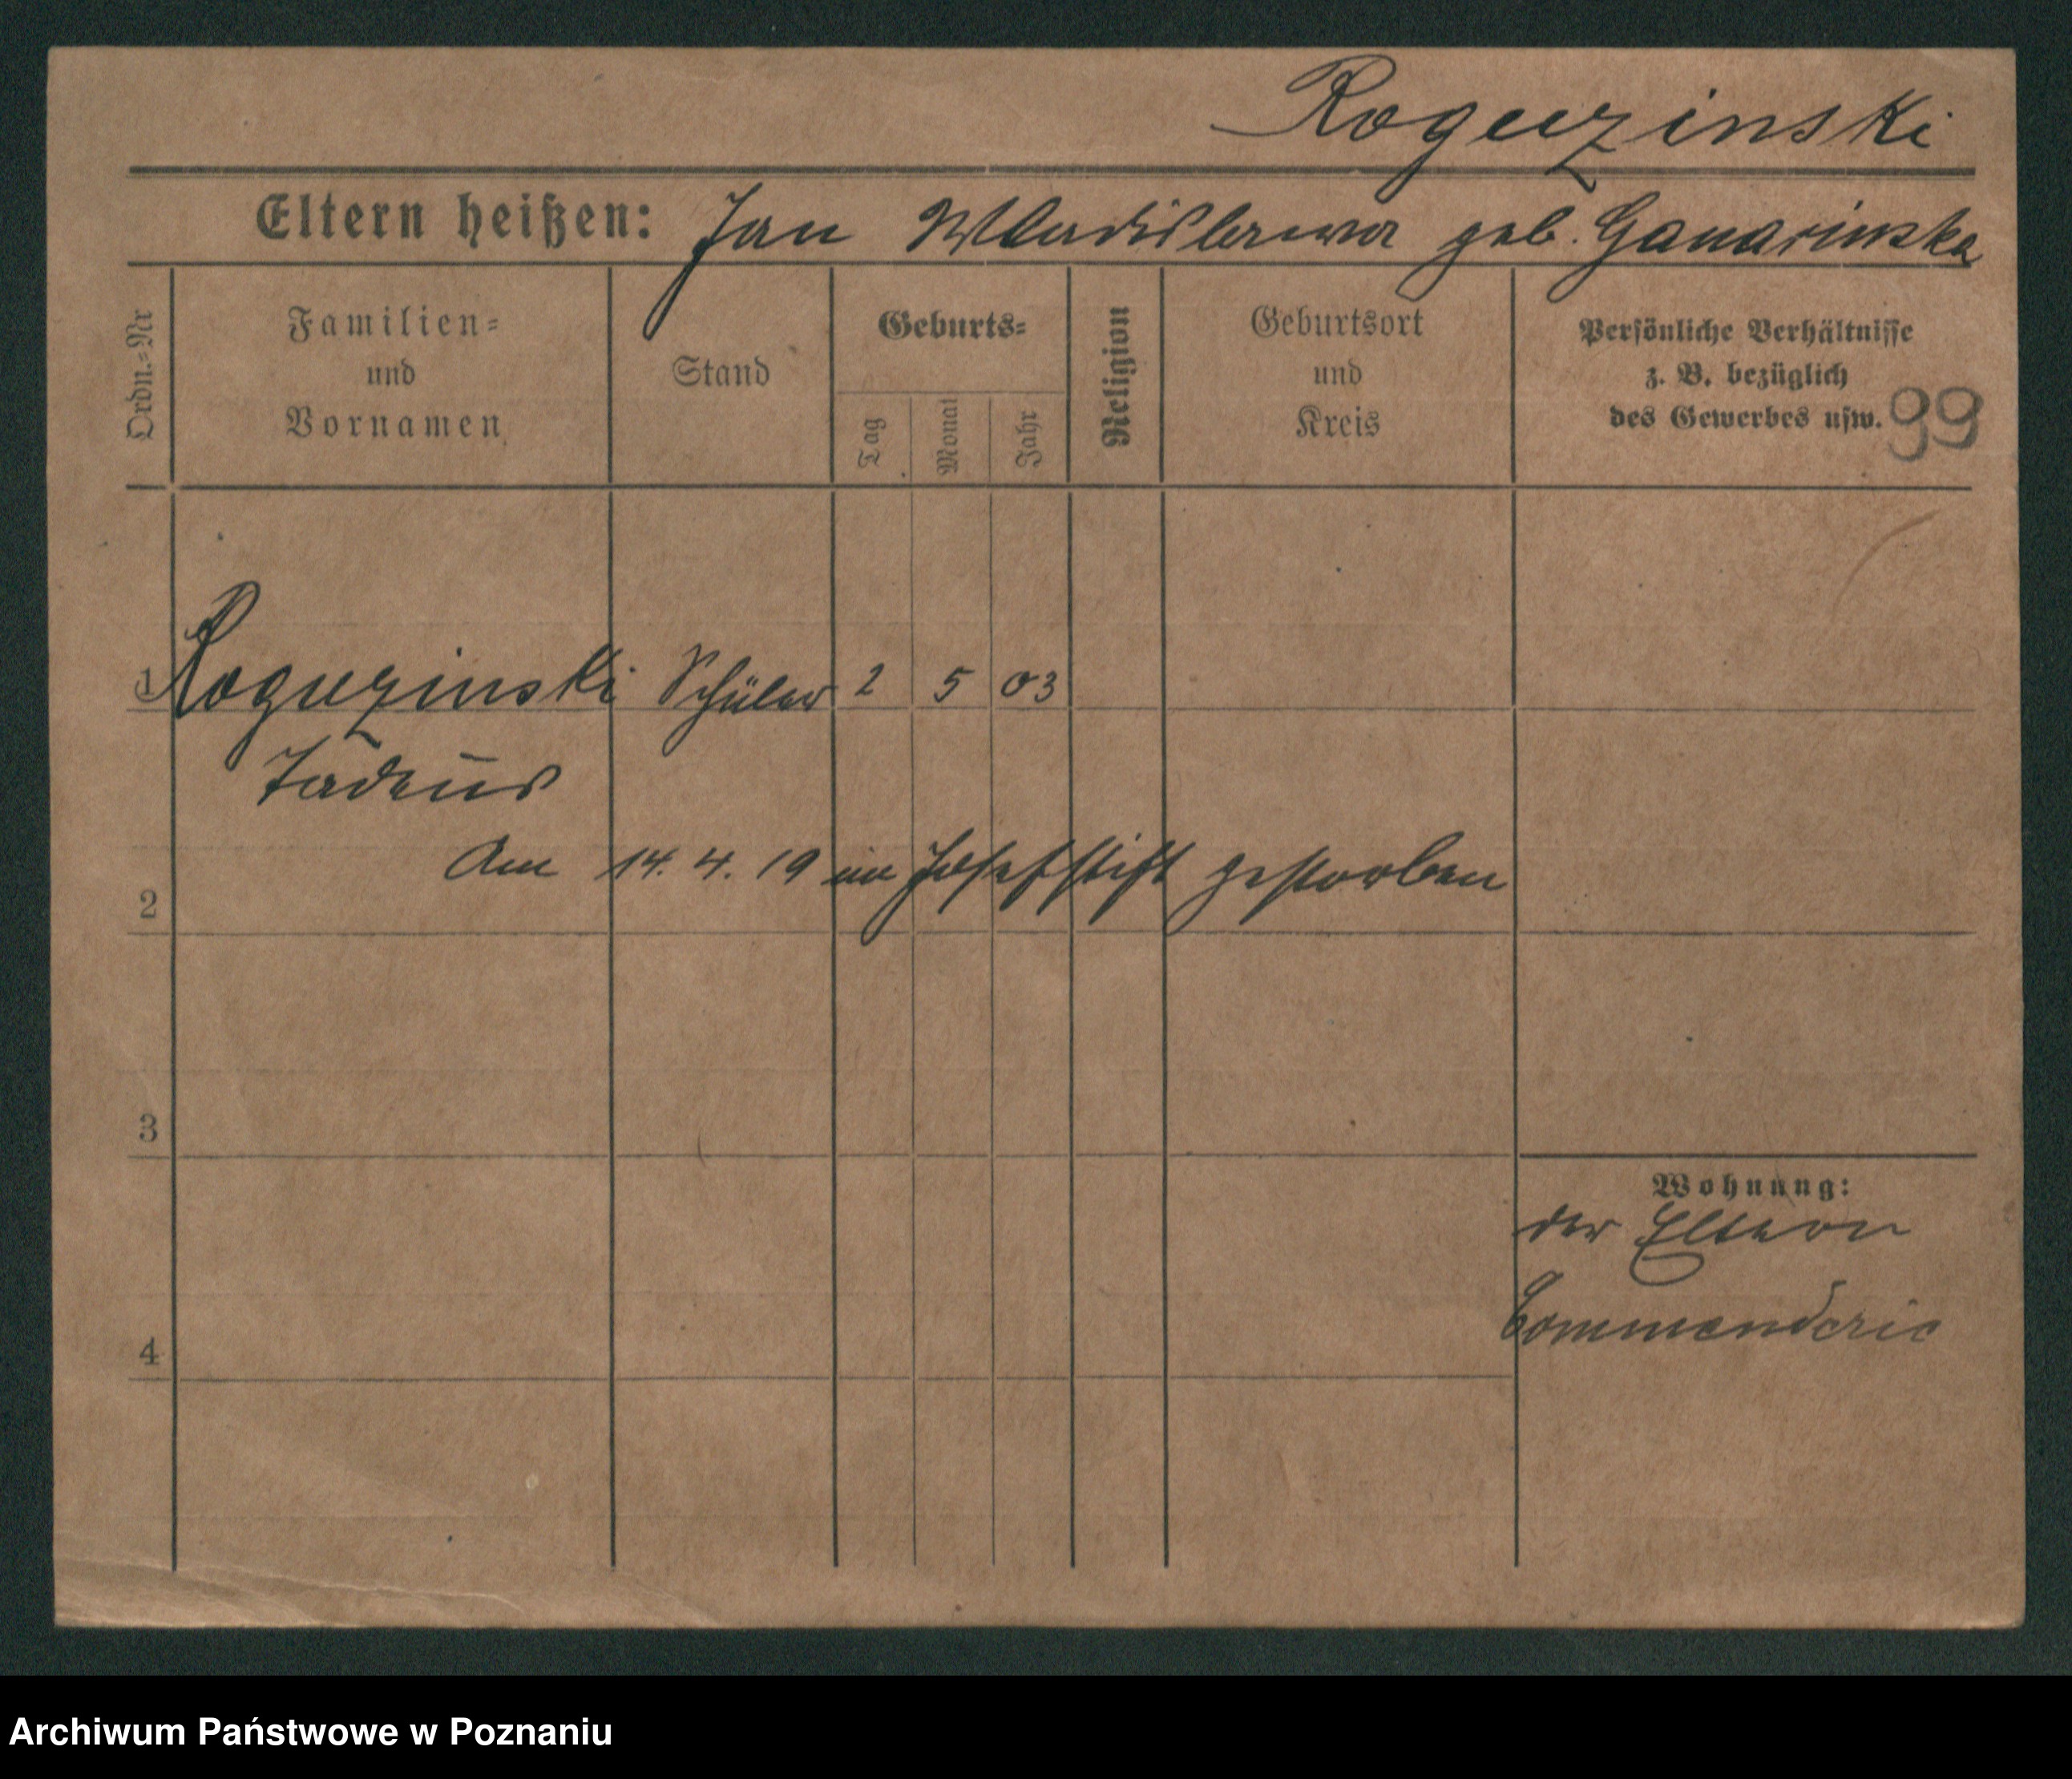 Roguzinski
Eltern heißen: Jan Wladislawa geb. Ganarinska
Ordn.=Nr
Familien= und Vornamen
Stand
Geburts=
Tag
Monat
Jahr
Religion
Geburtsort und Kreis
Persönliche Verhältnisse
z. B. bezüglich
des Gewerbes usw. 99
1 Roguzinski Schüler 2 5 03
Tadeus
Am 14. 4. 19 im Josefstift gestorben
2
3
Wohnung:
der Eltern
Commenderie
4
Archiwum Państwowe w Poznaniu